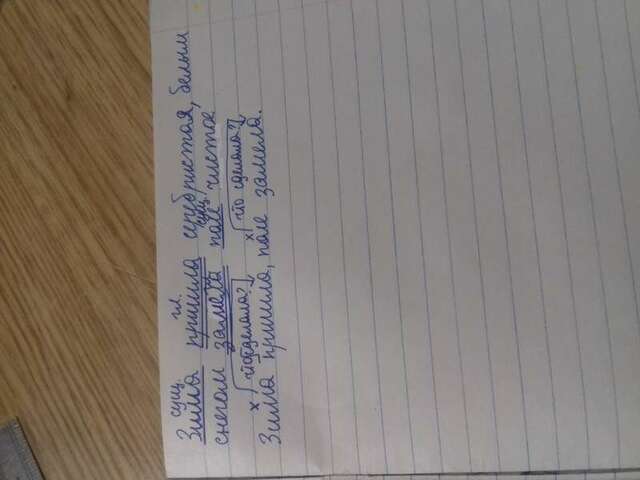 сущ. гл.
Зима пришла серебристая, белым
сущ.
снегом замела поле чистое
х что сделала? х что сделала?
Зима пришла, поле замела.